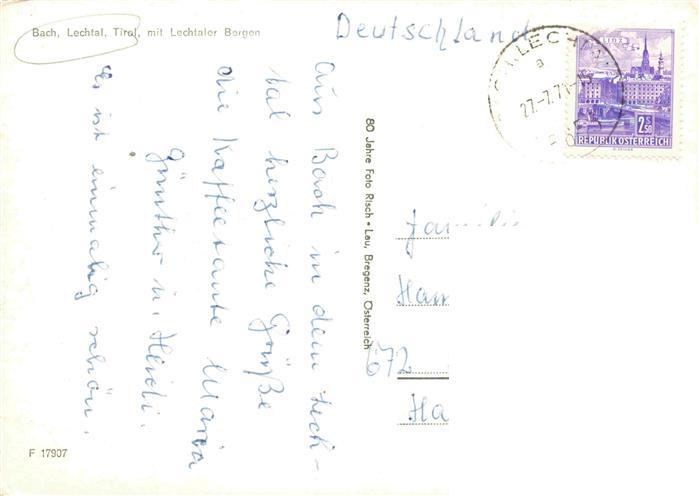 Bach, Lechtal, Tirol, mit Lechtaler Bergen
Deutschland
Aus Bach in dem Lech-
tal herzliche Grüße
die Kaffeetante Maria
Günther u. Heidi.
Es ist einmalig schön.
80 Jahre Foto Risch • Lau, Bregenz, Österreich
LINZ
2 S 50
REPUBLIK ÖSTERREICH
27.-7.71-15
Familie
Han
672
Ha
F 17907